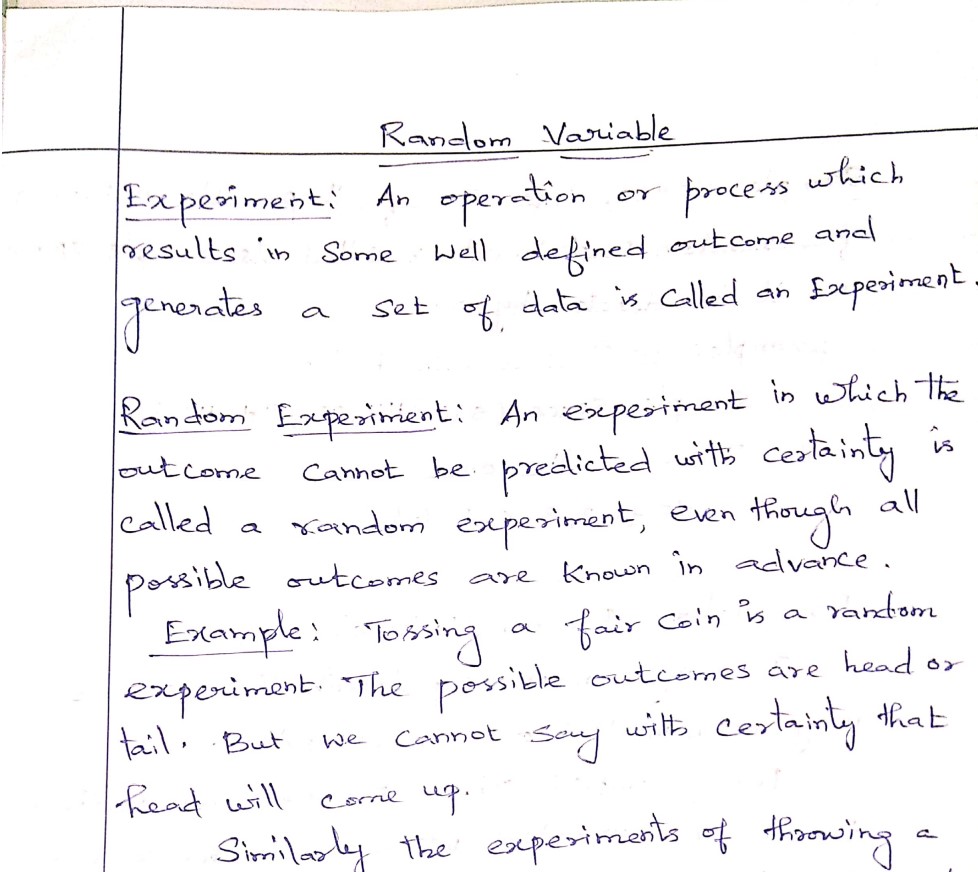 Random Variable
Experiment: An operation or process which
results in Some Well defined outcome and
generates a set of data is Called an Experiment.
Random Experiment: An experiment in which the
outcome Cannot be predicted with certainty is
called a random experiment, even though all
possible outcomes are Known in advance.
Example: Tossing a fair Coin is a random
experiment. The possible outcomes are head or
tail. But We Cannot Say with Certainty that
head will come up.
Similarly the experiments of throwing a